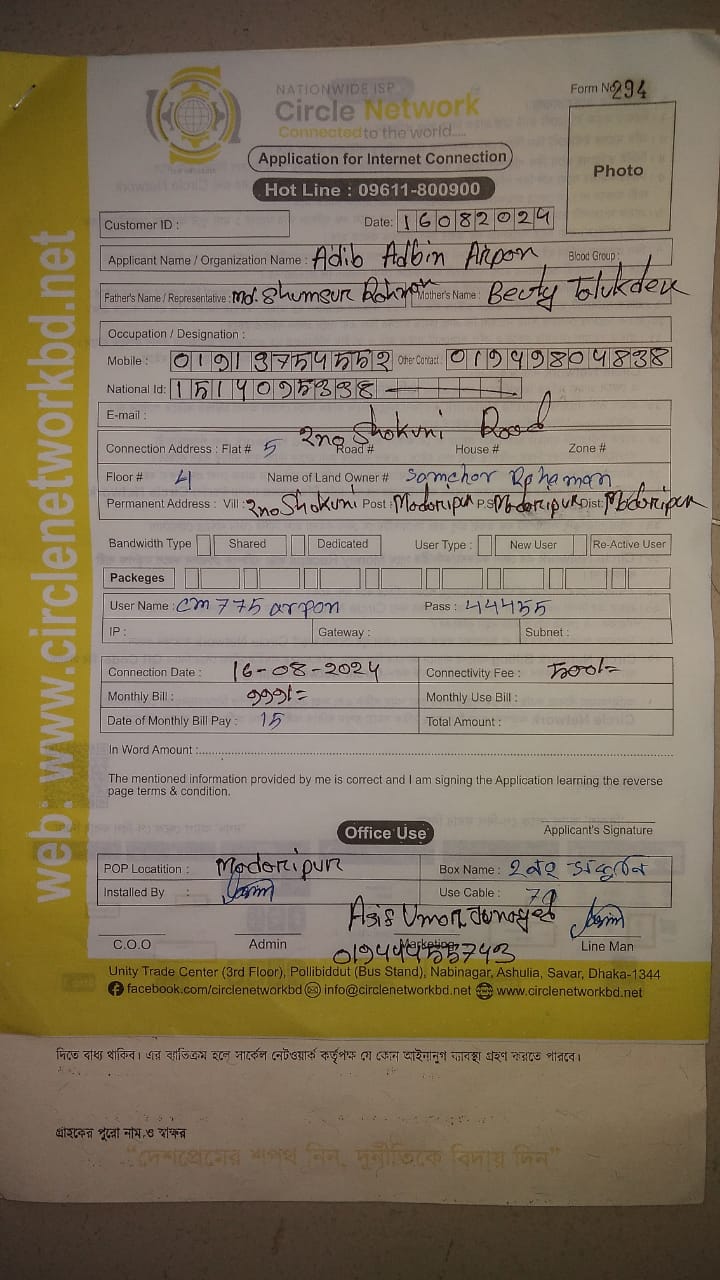 NATIONWIDE ISP
Circle Network
Connected to the world.....
Form No 294
Photo
Application for Internet Connection
Hot Line : 09611-800900
Customer ID :
Date: 16082024
Applicant Name / Organization Name : Adib Adbin Arpon Blood Group :
Father's Name / Representative : md. Shumsur Rahman Mother's Name : Beuty Talukder
Occupation / Designation :
Mobile : 01913754552 Other Contact : 01949804838
National Id: 1514095338
E-mail :
2no Shokuni Road
Connection Address : Flat # 5 Road # House # Zone #
Floor # 4 Name of Land Owner # Somchor Rahaman
Permanent Address : Vill : 2no Shokuni Post : Madaripur P.S Madaripur Dist: Madaripur
Bandwidth Type Shared Dedicated User Type : New User Re-Active User
Packeges
User Name : cm775 arpon Pass : 44455
IP : Gateway : Subnet :
Connection Date : 16-08-2024 Connectivity Fee :
Monthly Bill : Monthly Use Bill :
Date of Monthly Bill Pay : 15 Total Amount :
In Word Amount :
The mentioned information provided by me is correct and I am signing the Application learning the reverse
page terms & condition.
Applicant's Signature
Office Use
POP Locatition : Madaripur Box Name : ২নং
Installed By : Use Cable :
Asif Umor
C.O.O Admin Marketing Line Man
01944455743
Unity Trade Center (3rd Floor), Pollibiddut (Bus Stand), Nabinagar, Ashulia, Savar, Dhaka-1344
facebook.com/circlenetworkbd info@circlenetworkbd.net www.circlenetworkbd.net
web: www.circlenetworkbd.net
দিতে বাধ্য থাকিব। এর ব্যতিক্রম হলে সার্কেল নেটওয়ার্ক কর্তৃপক্ষ যে কোন আইনানুগ ব্যবস্থা গ্রহণ করতে পারবে।
গ্রাহকের পুরো নাম ও স্বাক্ষর
“দেশপ্রেমের শপথ নিন, দুর্নীতিকে বিদায় দিন”